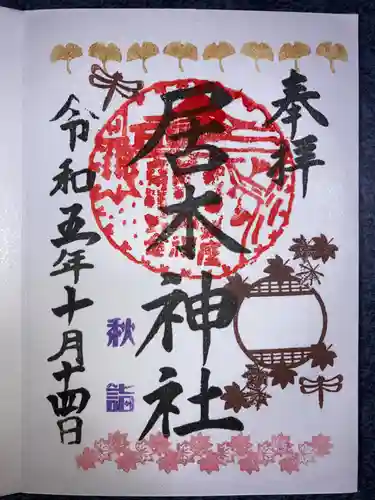 奉拝
居木神社
令和五年十月十四日
秋詣